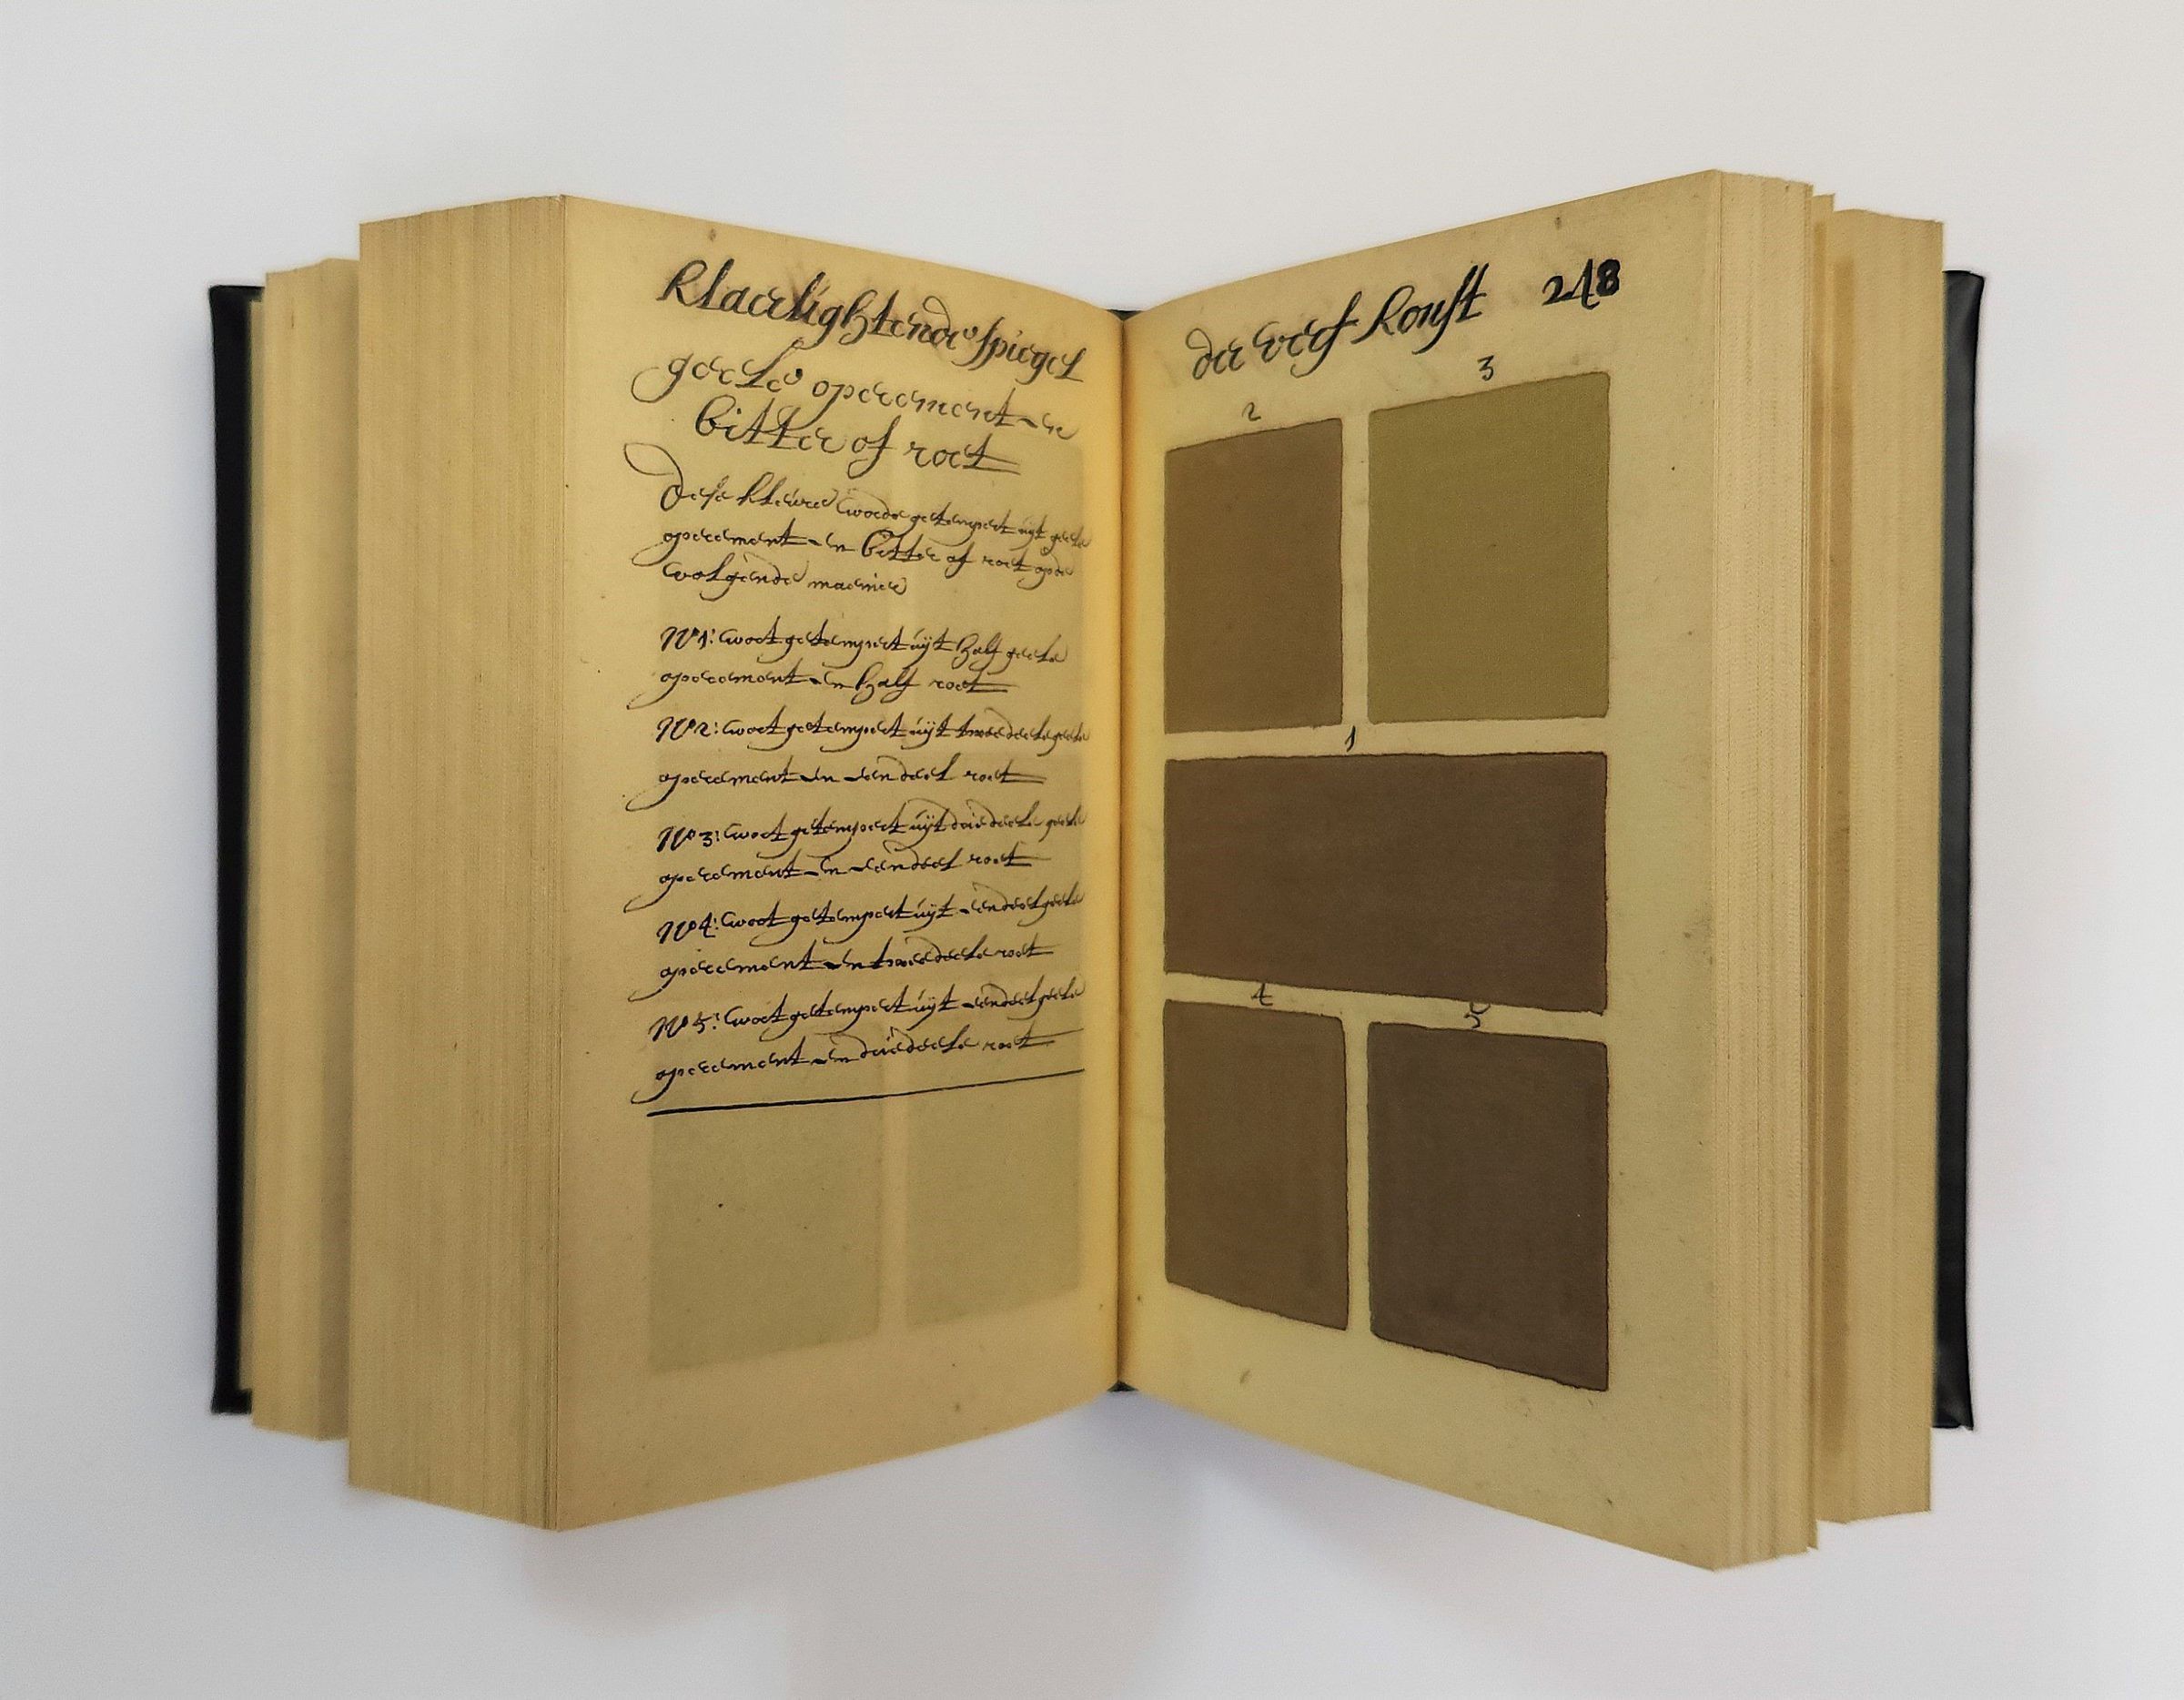 Klaerlightende spiegel
geele operement en
bitter of roet
Dese kleure worde getempert uÿt geele
operement en bitter of roet op de
volgende manier
No 1: wort getempert uÿt half geele
operement en half roet
No 2: wort getempert uÿt twee deele geele
operement en een deel roet
No 3: wort getempert uÿt drie deele geele
operement en een deel roet
No 4: wort getempert uÿt een deel geele
operement en twee deele roet
No 5: wort getempert uÿt een deel geele
operement en drie deele roet
der verf konst 248
2 3
1
4 5